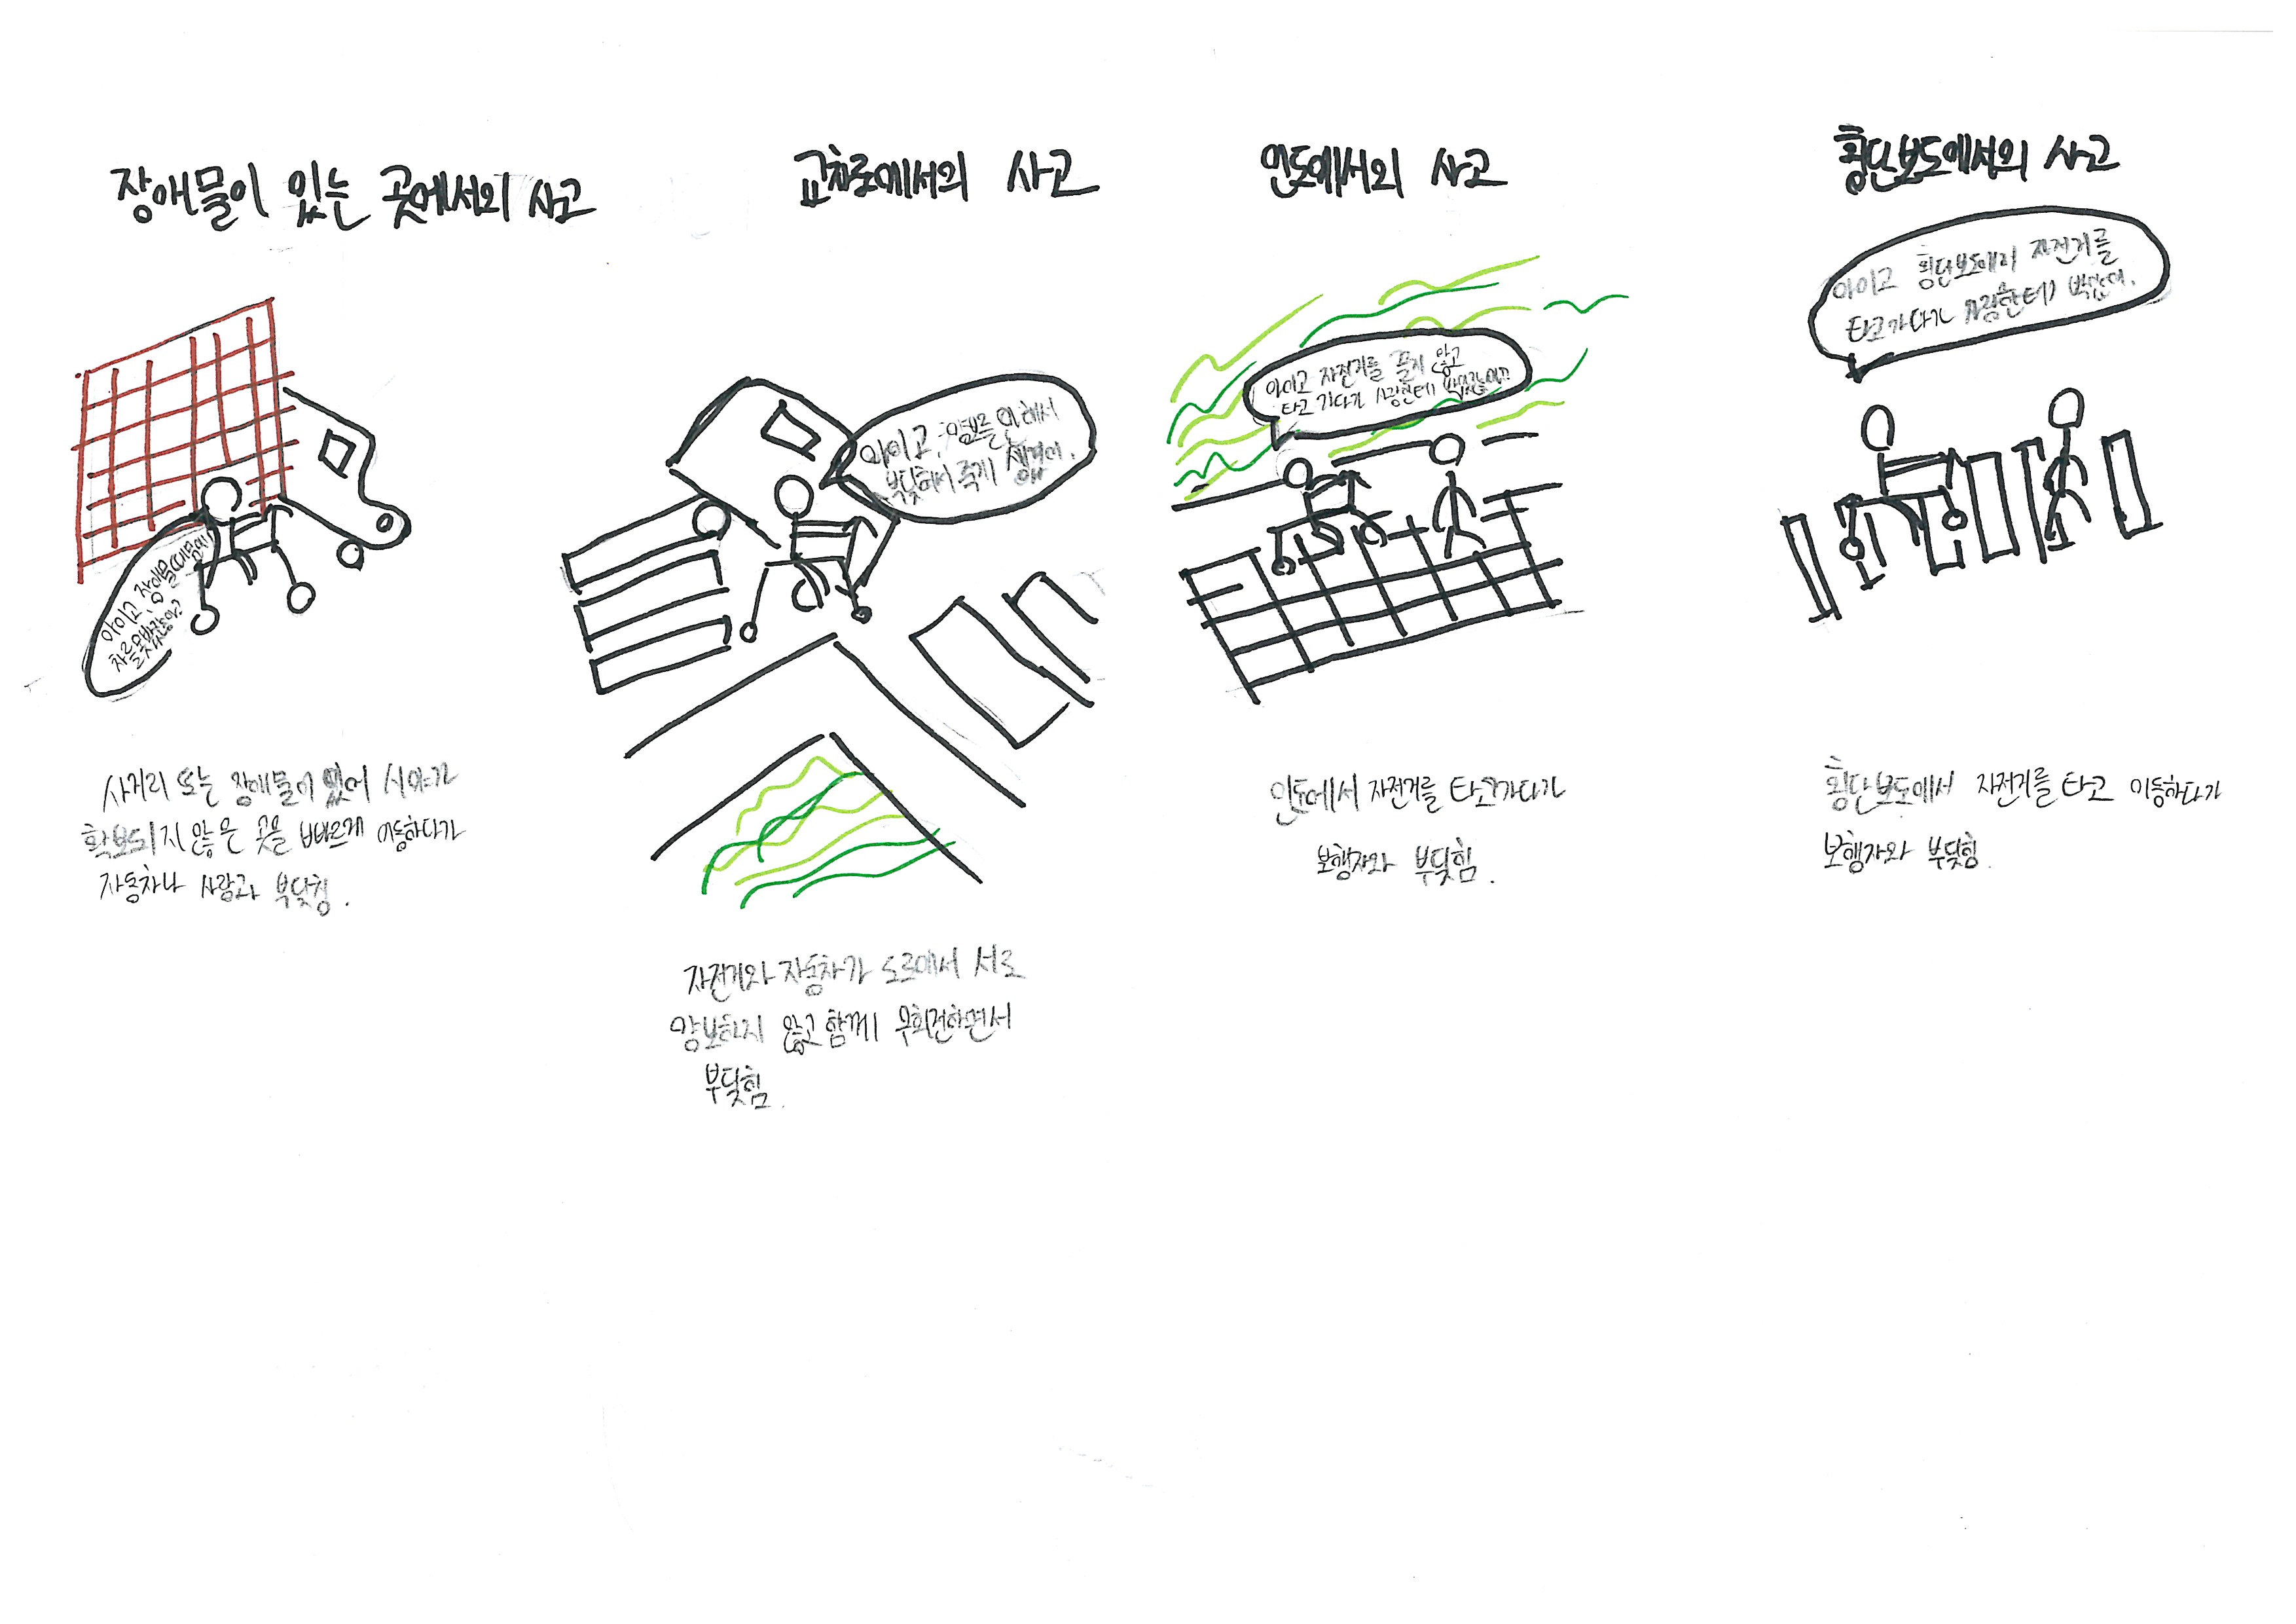 장애물이 있는 곳에서의 사고
아이고, 장애물 때문에
차를 못봤잖아?
사거리 또는 장애물이 있어 시야가
확보되지 않은 곳을 빠르게 이동하다가
자동차나 사람과 부딪힘.
교차로에서의 사고
아이고, 안해서
부딪혀서 죽게 생겼어.
자전거와 자동차가 도로에서 서로
양보하지 않고 함께 우회전하면서
부딪힘.
인도에서의 사고
아이고 자전거를 끌지 않고
타고 가다가 사람한테
인도에서 자전거를 타고가다가
보행자와 부딪힘.
횡단보도에서의 사고
아이고 횡단보도에서 자전거를
타고가다가 사람한테 박았어.
횡단보도에서 자전거를 타고 이동하다가
보행자와 부딪힘.